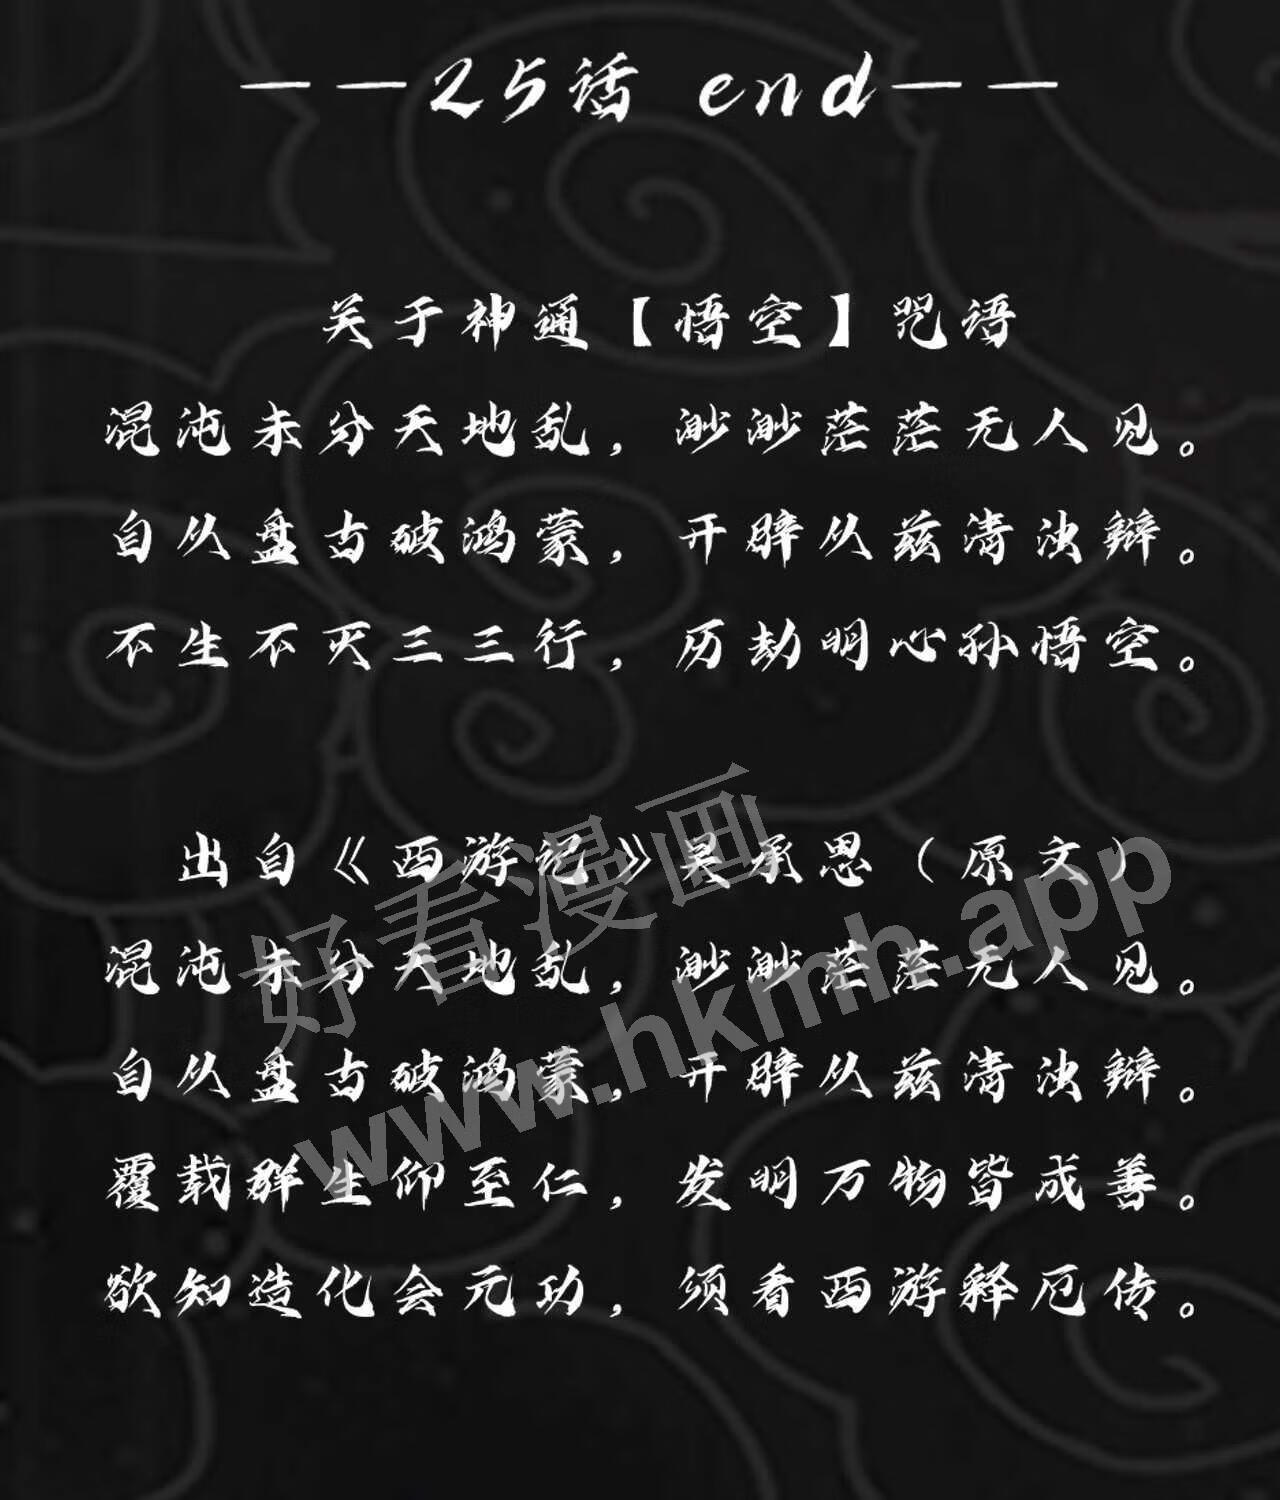 ——25话 end——
关于神通【悟空】咒语
混沌未分天地乱，渺渺茫茫无人见。
自从盘古破鸿蒙，开辟从兹清浊辩。
不生不灭三三行，历劫明心孙悟空。
出自《西游记》吴承恩（原文）
混沌未分天地乱，渺渺茫茫无人见。
自从盘古破鸿蒙，开辟从兹清浊辩。
覆载群生仰至仁，发明万物皆成善。
欲知造化会元功，须看西游释厄传。
好看漫画
www.hkmh.app